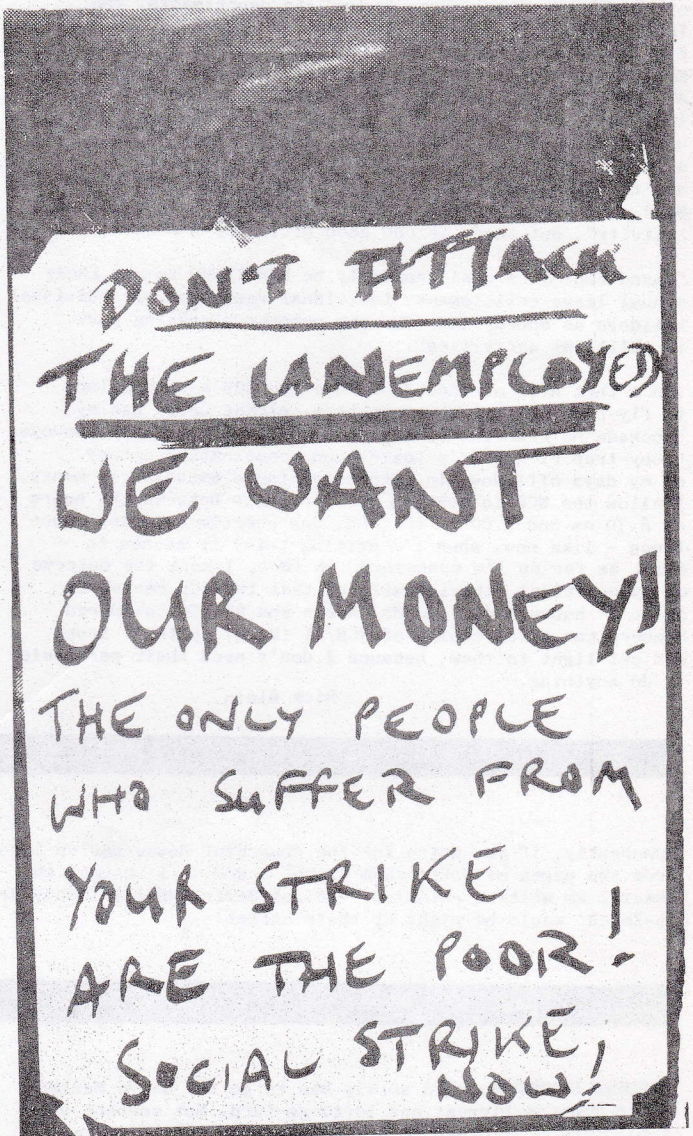 DON'T ATTACK
THE UNEMPLOYED
WE WANT
OUR MONEY!
THE ONLY PEOPLE
WHO SUFFER FROM
YOUR STRIKE
ARE THE POOR!
SOCIAL STRIKE,
NOW!